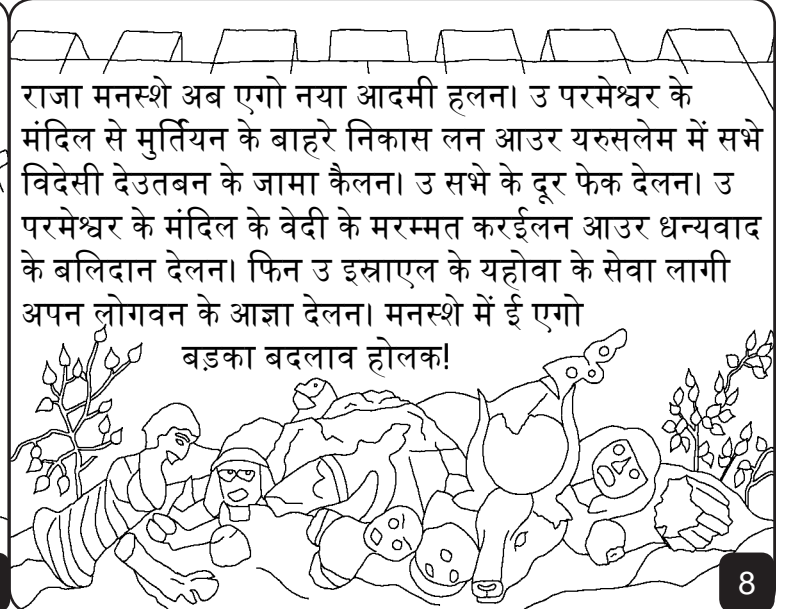 राजा मनस्शे अब एगो नया आदमी हलन। उ परमेश्वर के
मंदिल से मुर्तियन के बाहरे निकास लन आउर यरुसलेम में सभे
विदेसी देउतबन के जामा कैलन। उ सभे के दूर फेक देलन। उ
परमेश्वर के मंदिल के वेदी के मरम्मत करईलन आउर धन्यवाद
के बलिदान देलन। फिन उ इस्राएल के यहोवा के सेवा लागी
अपन लोगवन के आज्ञा देलन। मनस्शे में ई एगो
बड़का बदलाव होलक!
8